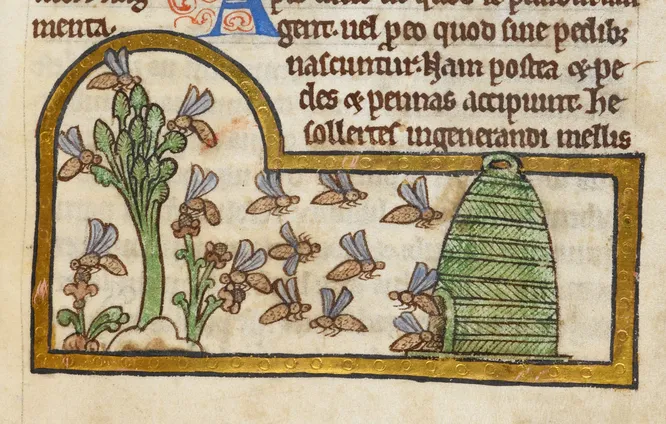 menta. gent. uel ꝓeo quod sine pedib;
nascuntur. Nam postea & pe
des & pennas accipiunt. he
sollertes ingenerandi mellis